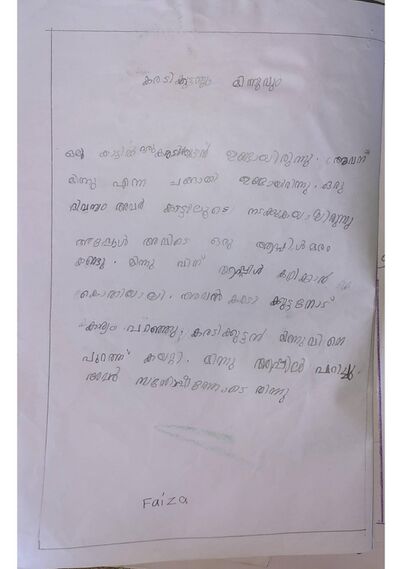 കരടികുട്ടനും മിന്നുവും
ഒരു കാട്ടിൽ ഒരു കരടികുട്ടൻ ഉണ്ടായിരുന്നു. അവന്
മിന്നു എന്ന ചങ്ങാതി ഉണ്ടായിരുന്നു. ഒരു
ദിവസം അവർ കാട്ടിലൂടെ നടക്കുകയായിരുന്നു
അപ്പോൾ അവിടെ ഒരു ആപ്പിൾ മരം
കണ്ടു. മിന്നു വിന് ആപ്പിൾ കഴിക്കാൻ
കൊതിയായി. അവൻ കരടി കുട്ടനോട്
കാര്യം പറഞ്ഞു; കരടിക്കുട്ടൻ മിന്നുവിനെ
പുറത്ത് കയറ്റി. മിന്നു ആപ്പിൾ പറിച്ചു.
അവർ സന്തോഷത്തോടെ തിന്നു
Faiza